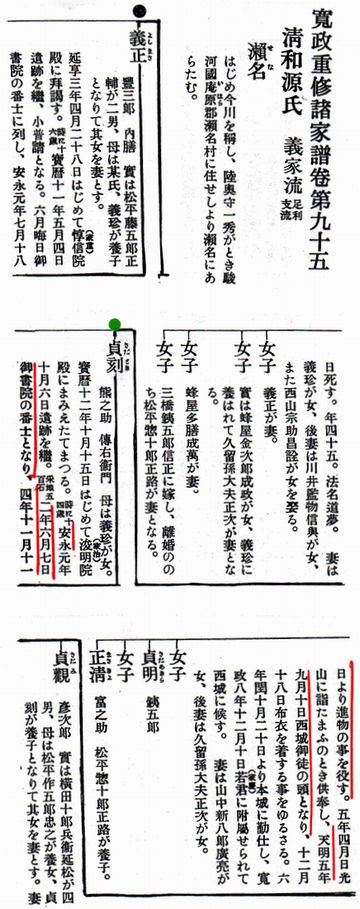 寛政重修諸家譜卷第九十五
清和源氏 義家流 足利支流
瀬名 せな
はじめ今川を稱し、陸奥守一秀がとき駿
河國庵原郡瀬名村に住せしより瀬名にあ
らたむ。
義正 よしまさ
豐三郎 内膳 實は松平藤五郎正
輔が二男、母は某氏、義珍が養子
となりて其女を妻とす。
延享三年四月二十八日はじめて惇信院
殿に拜謁す。時に十六歳 寳暦十一年五月四日
遺跡を繼、小普請となる。六月晦日御
書院の番士に列し、安永元年七月十八
日死す。年四十五。法名道夢。 妻は
義珍が女、後妻は川井監物信興が女、
また西山宗助昌詮が女を娶る。
女子 義正が妻。
女子 實は蜂屋金次郎成政が女、義珍に
養はれて久留孫大夫正次が妻とな
る。
女子 蜂屋多膳成萬が妻。
女子 三橋銕五郎信正に嫁し、離婚のの
ち松平惣十郎正路が妻となる。
貞刻 さだとき
熊之助 傳右衛門 母は義珍が女。
寳暦十二年十月十五日はじめて浚明院
殿にまみえたてまつる。時に十四歳 安永元年
十月六日遺跡を繼。采地五百石 二年六月七日
御書院の番士となり、四年十一月十一
日より進物の事を役す。五年四月日光
山に詣たまふのとき供奉し、天明五年
九月十日西城御徒の頭となり、十二月
十八日布衣を着する事をゆるさる。六
年閏十月二十日より本城に勤仕し、寛
政八年十二月十日若君に附屬せられて
西城に候す。 妻は山中新八郎廣亮が
女、後妻は久留孫大夫正次が女。
女子
貞明 さだあきら 銕五郎
女子
正淸 まさきよ 富之助 松平惣十郎正路が養子。
貞觀 さだみ
彦次郎 實は横田十郎兵衛延松が四
男、母は松平作五郎忠之が養女、貞
刻が養子となりて其女を妻とす。妻